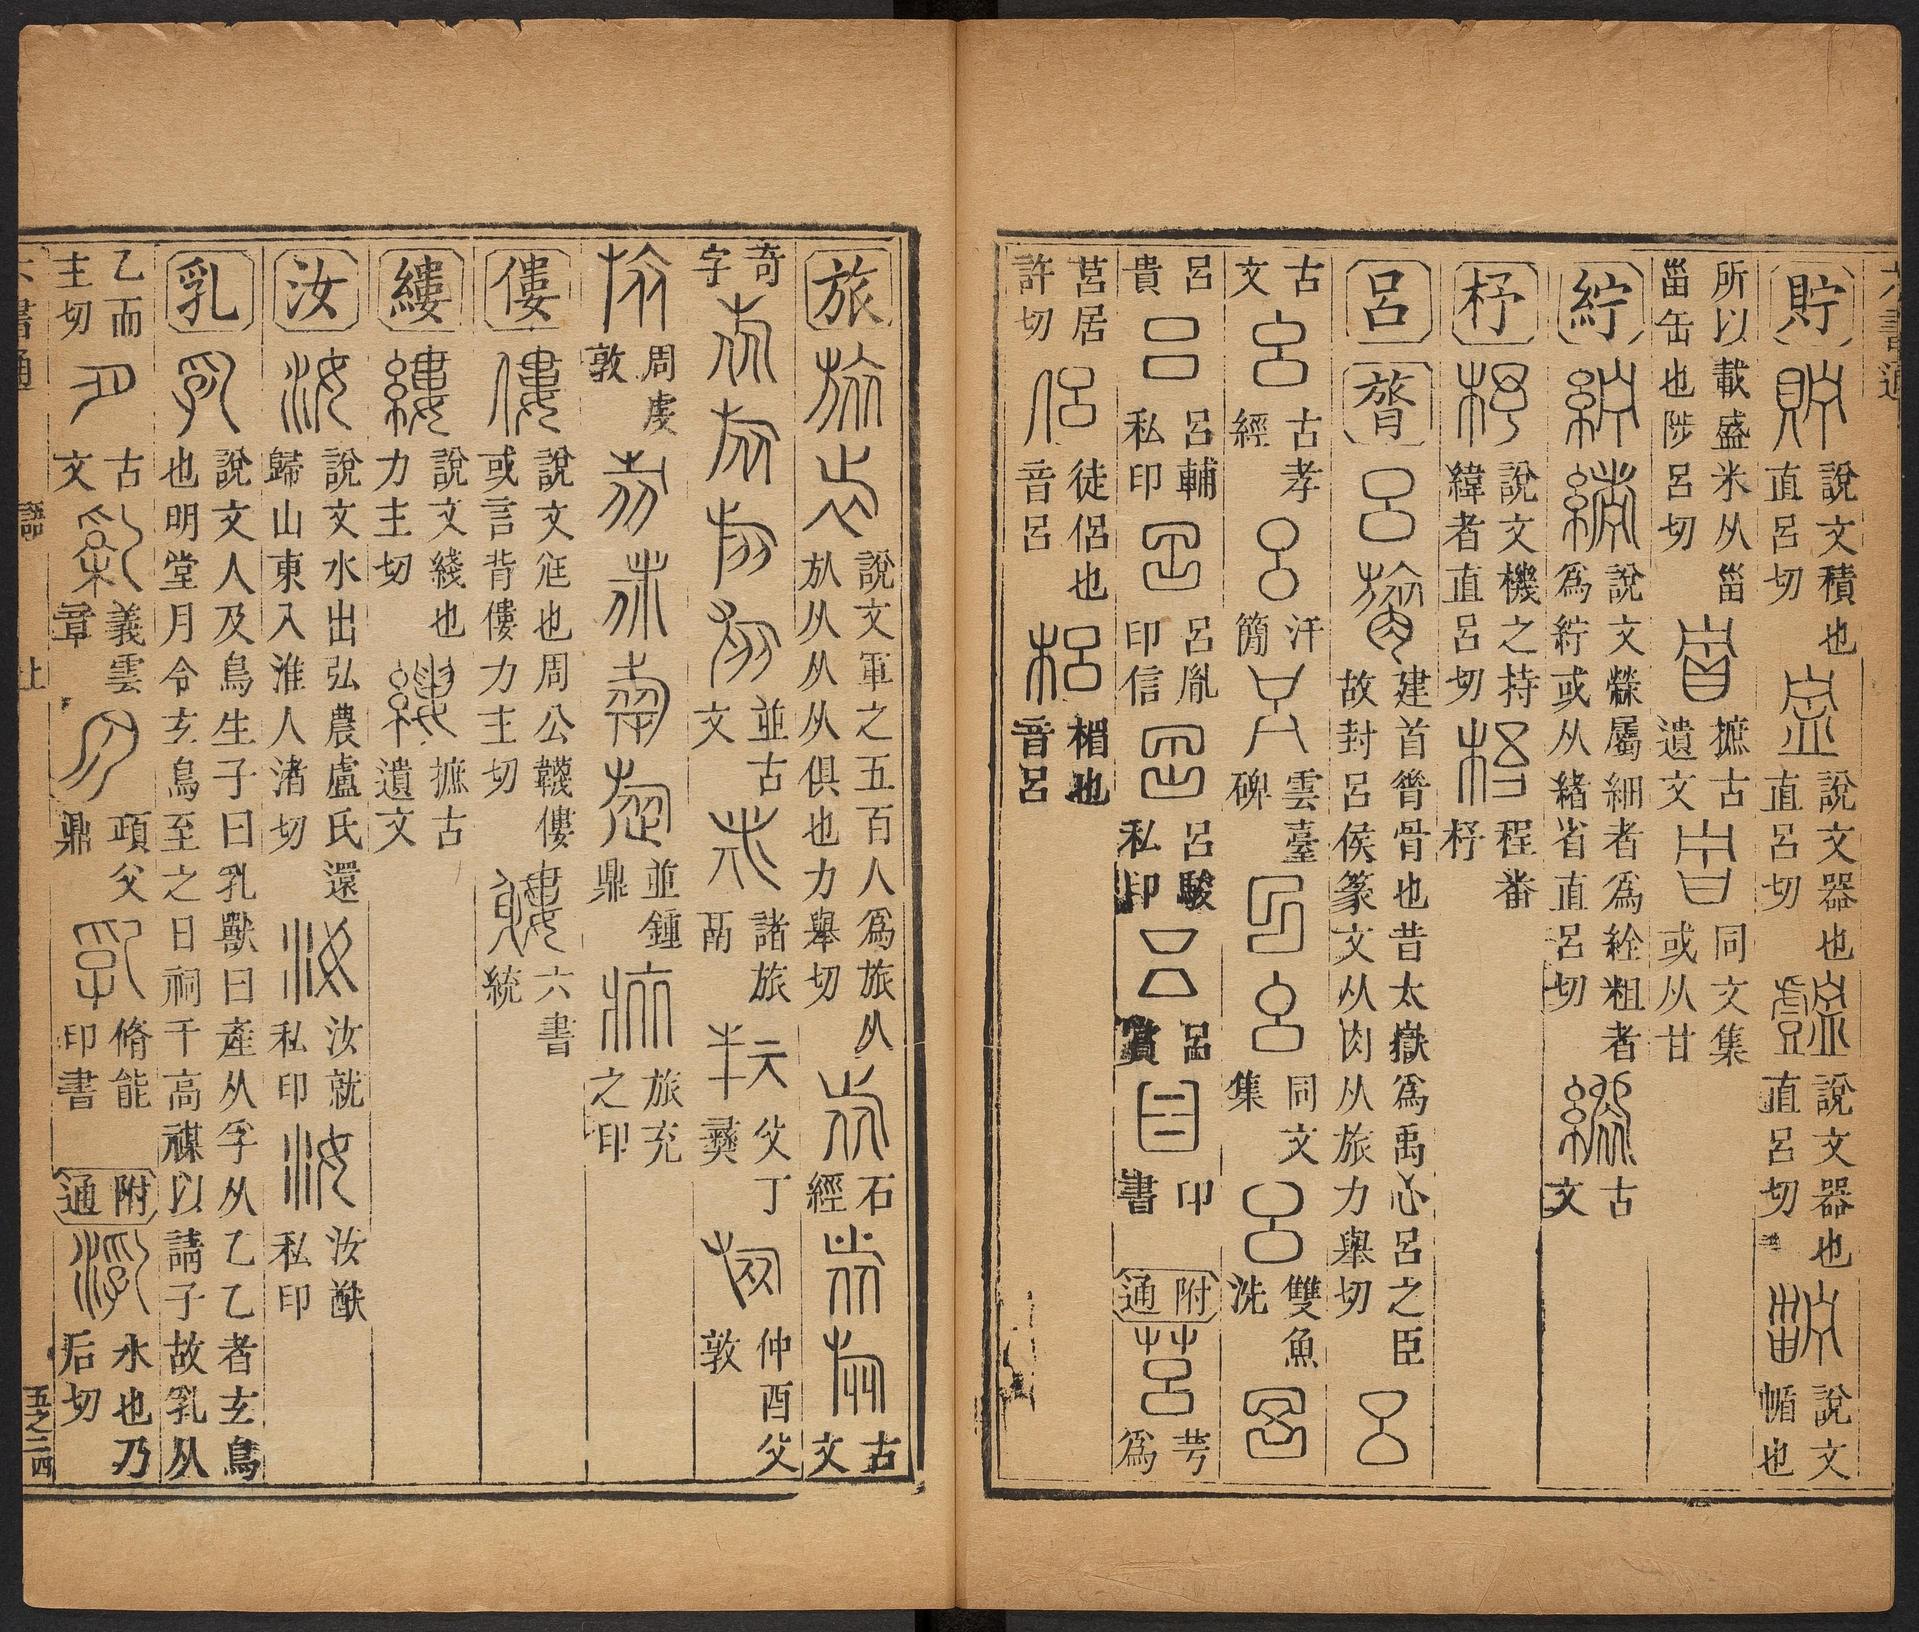 貯 說文積也直呂切 說文器也直呂切 說文器也直呂切 說文㡒也
所以載盛米从甾甾缶也陟呂切 摭古遺文 同文集或从甘
紵 說文䌌屬細者爲絟粗者爲紵或从緒省直呂切 古文
杼 說文機之持緯者直呂切 程番杼
呂 膂 建首脊骨也昔太嶽爲禹心呂之臣故封呂侯篆文从肉从旅力舉切
古文 古孝經 汗簡 雲臺碑 同文集 雙魚洗
呂貴 呂輔私印 呂胤印信 呂駿私印 呂賁 印書 附通 莒 艼爲
莒居許切 徒侶也音呂 楣也音呂
旅 說文軍之五百人爲旅从㫃从从从俱也力舉切 石經 古文
奇字 並古文 諸旅鬲 父丁彝 仲酉父敦
周䖍敦 並鍾鼎 旅充之印
僂 說文尫也周公韈僂或言背僂力主切 六書統
縷 說文綫也力主切 摭古遺文
汝 說文水出弘農盧氏還歸山東入淮人渚切 汝就私印 汝猷私印
乳 說文人及鳥生子曰乳獸曰產从孚从乙乙者玄鳥也明堂月令玄鳥至之日祠于高禖以請子故乳从
乙而主切 古文 義雲章 㱏父鼎 脩能印書 附通 水也乃后切
五之二四